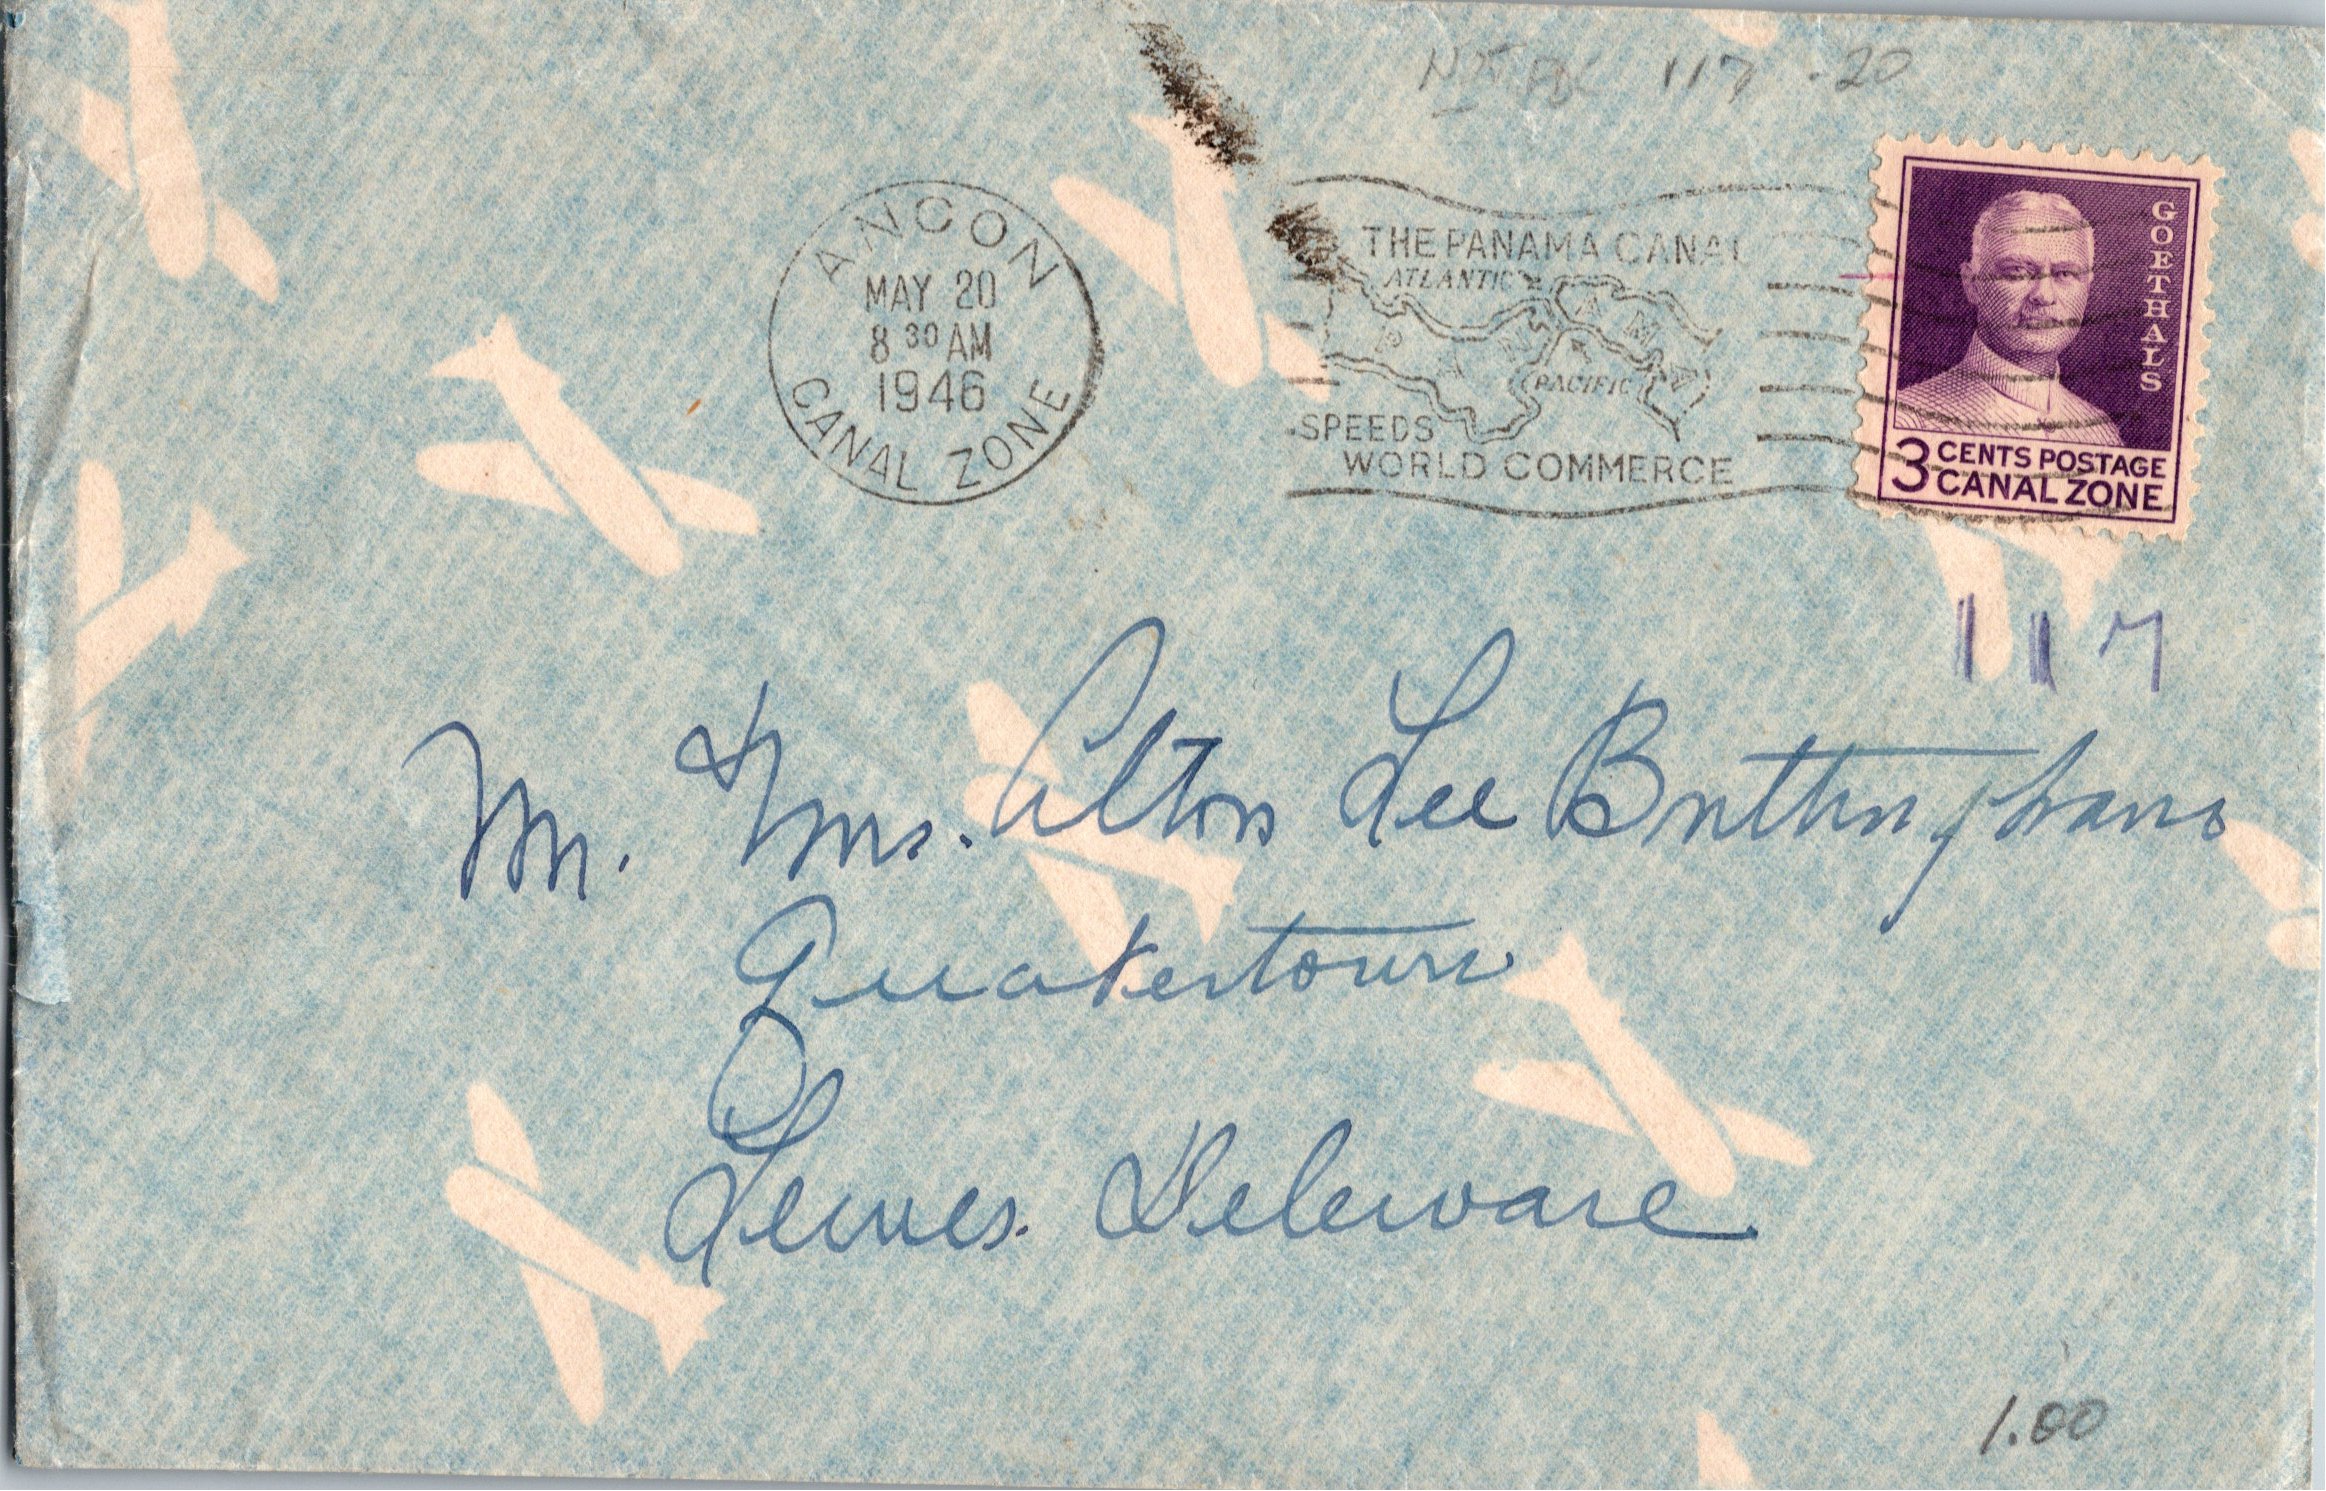 NOT FDC 117 .20
ANCON
MAY 20
8 30 AM
1946
CANAL ZONE
THE PANAMA CANAL
ATLANTIC
PANAMA
PACIFIC
SPEEDS
WORLD COMMERCE
GOETHALS
3 CENTS POSTAGE
CANAL ZONE
117
Mr. & Mrs. Alton Lee Brittingham
Quakertown
Lewes. Deleware
1.00